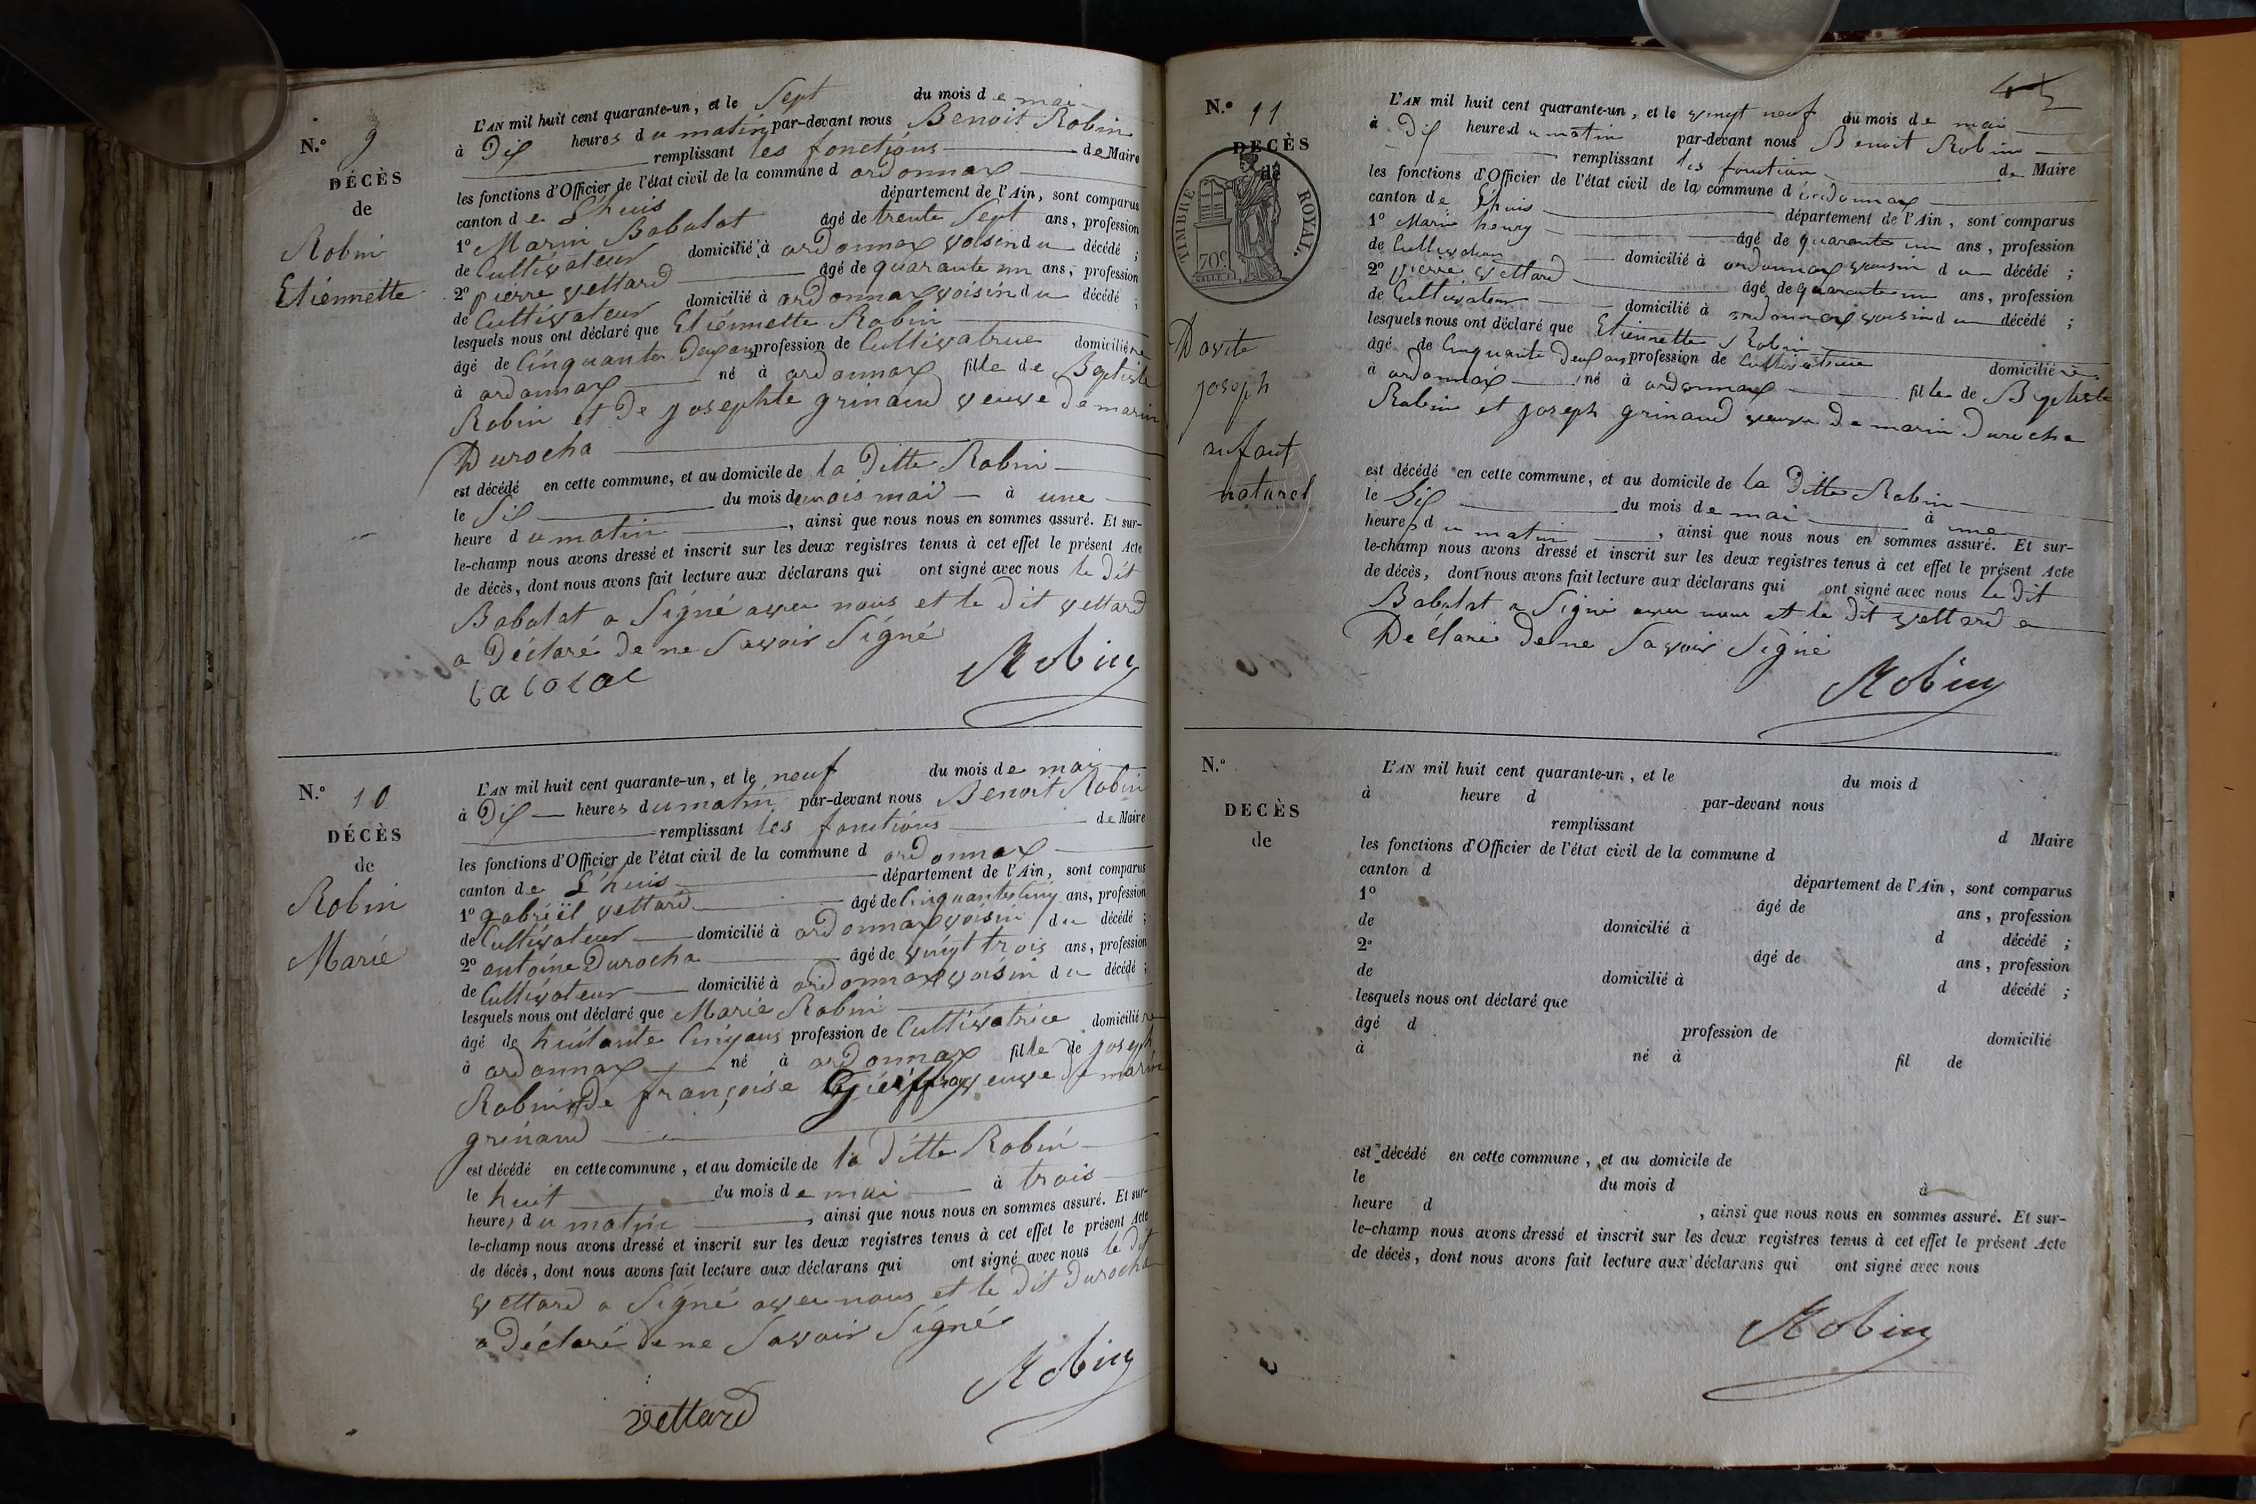 N.º 9
DÉCÈS
de
Robin
Etiénnette
L'AN mil huit cent quarante-un, et le Sept du mois de mai
à Dix heures du matin par-devant nous Benoit Robin
remplissant les fonctions de Maire
les fonctions d'Officier de l'état civil de la commune d ordonnax
canton de Lhuis département de l'Ain, sont comparus
1º Marin Babolat âgé de trente Sept ans, profession
de Cultivateur domicilié à ordonnax voisin du décédé ;
2º pierre vettard âgé de quarante un ans, profession
de Cultivateur domicilié à ordonnax voisin du décédé ;
lesquels nous ont déclaré que Etiénnette Robin
âgé de Cinquante Deux ans profession de Cultivatrice domiciliére
à ordonnax né à ordonnax fille de Baptiste
Robin et De Josephte grinand veuve De marin
Durocha
est décédé en cette commune, et au domicile de la Ditte Robin
le Six du mois de mai à une
heure du matin, ainsi que nous nous en sommes assuré. Et sur-
le-champ nous avons dressé et inscrit sur les deux registres tenus à cet effet le présent Acte
de décès, dont nous avons fait lecture aux déclarans qui ont signé avec nous le dit
Babolat a Signé avec nous et le Dit vettard
a Déclaré De ne Savoir Signé
Robin
N.º 10
DÉCÈS
de
Robin
Marie
L'AN mil huit cent quarante-un, et le neuf du mois de mai
à Dix heures du matin par-devant nous Benoit Robin
remplissant les fonctions de Maire
les fonctions d'Officier de l'état civil de la commune d ordonnax
canton de Lhuis département de l'Ain, sont comparus
1º gabriël vettard âgé de Cinquante cinq ans, profession
de Cultivateur domicilié à ordonnax voisin du décédé ;
2º antoine Durocha âgé de vingt trois ans, profession
de Cultivateur domicilié à ordonnax voisin du décédé ;
lesquels nous ont déclaré que Marie Robin
âgé de huitante Cinq ans profession de Cultivatrice domiciliére
à ordonnax né à ordonnax fille de Joseph
Robin et De françoise veuve De marin
grinand
est décédé en cette commune, et au domicile de la Ditte Robin
le huit du mois de mai à trois
heures du matin, ainsi que nous nous en sommes assuré. Et sur-
le-champ nous avons dressé et inscrit sur les deux registres tenus à cet effet le présent Acte
de décès, dont nous avons fait lecture aux déclarans qui ont signé avec nous le Dit
vettard a Signé avec nous et le Dit Durocha
a Déclaré De ne Savoir Signé
Robin
vettard
N.º 11
DECÈS
de
TIMBRE ROYAL.
70c
Davite
Joseph
enfant
naturel
L'AN mil huit cent quarante-un, et le vingt neuf du mois de mai
à Dix heures du matin par-devant nous Benoit Robin
remplissant les fonction de Maire
les fonctions d'Officier de l'état civil de la commune d ordonnax
canton de Lhuis département de l'Ain, sont comparus
1º Marin henry âgé de quarante un ans, profession
de Cultivateur domicilié à ordonnax voisin du décédé ;
2º pierre vettard âgé de quarante un ans, profession
de Cultivateur domicilié à ordonnax voisin du décédé ;
lesquels nous ont déclaré que Etiennette Robin
âgé de Cinquante Deux ans profession de Cultivatrice domiciliére
à ordonnax né à ordonnax fille de Baptiste
Robin et Joseph grinand veuve De marin Durocha
est décédé en cette commune, et au domicile de la Ditte Robin
le Six du mois de mai à une
heures du matin, ainsi que nous nous en sommes assuré. Et sur-
le-champ nous avons dressé et inscrit sur les deux registres tenus à cet effet le présent Acte
de décès, dont nous avons fait lecture aux déclarans qui ont signé avec nous le Dit
Babolat a Signé avec nous et le Dit vettard a
Déclaré De ne Savoir Signé
Robin
N.º
DECÈS
de
L'AN mil huit cent quarante-un, et le du mois d
à heure d par-devant nous
remplissant d Maire
les fonctions d'Officier de l'état civil de la commune d
canton d département de l'Ain, sont comparus
1º âgé de ans, profession
de domicilié à d décédé ;
2º âgé de ans, profession
de domicilié à d décédé ;
lesquels nous ont déclaré que
âgé d profession de domicilié
à né à fil de
est décédé en cette commune, et au domicile de
le du mois d à
heure d, ainsi que nous nous en sommes assuré. Et sur-
le-champ nous avons dressé et inscrit sur les deux registres tenus à cet effet le présent Acte
de décès, dont nous avons fait lecture aux déclarans qui ont signé avec nous
Robin